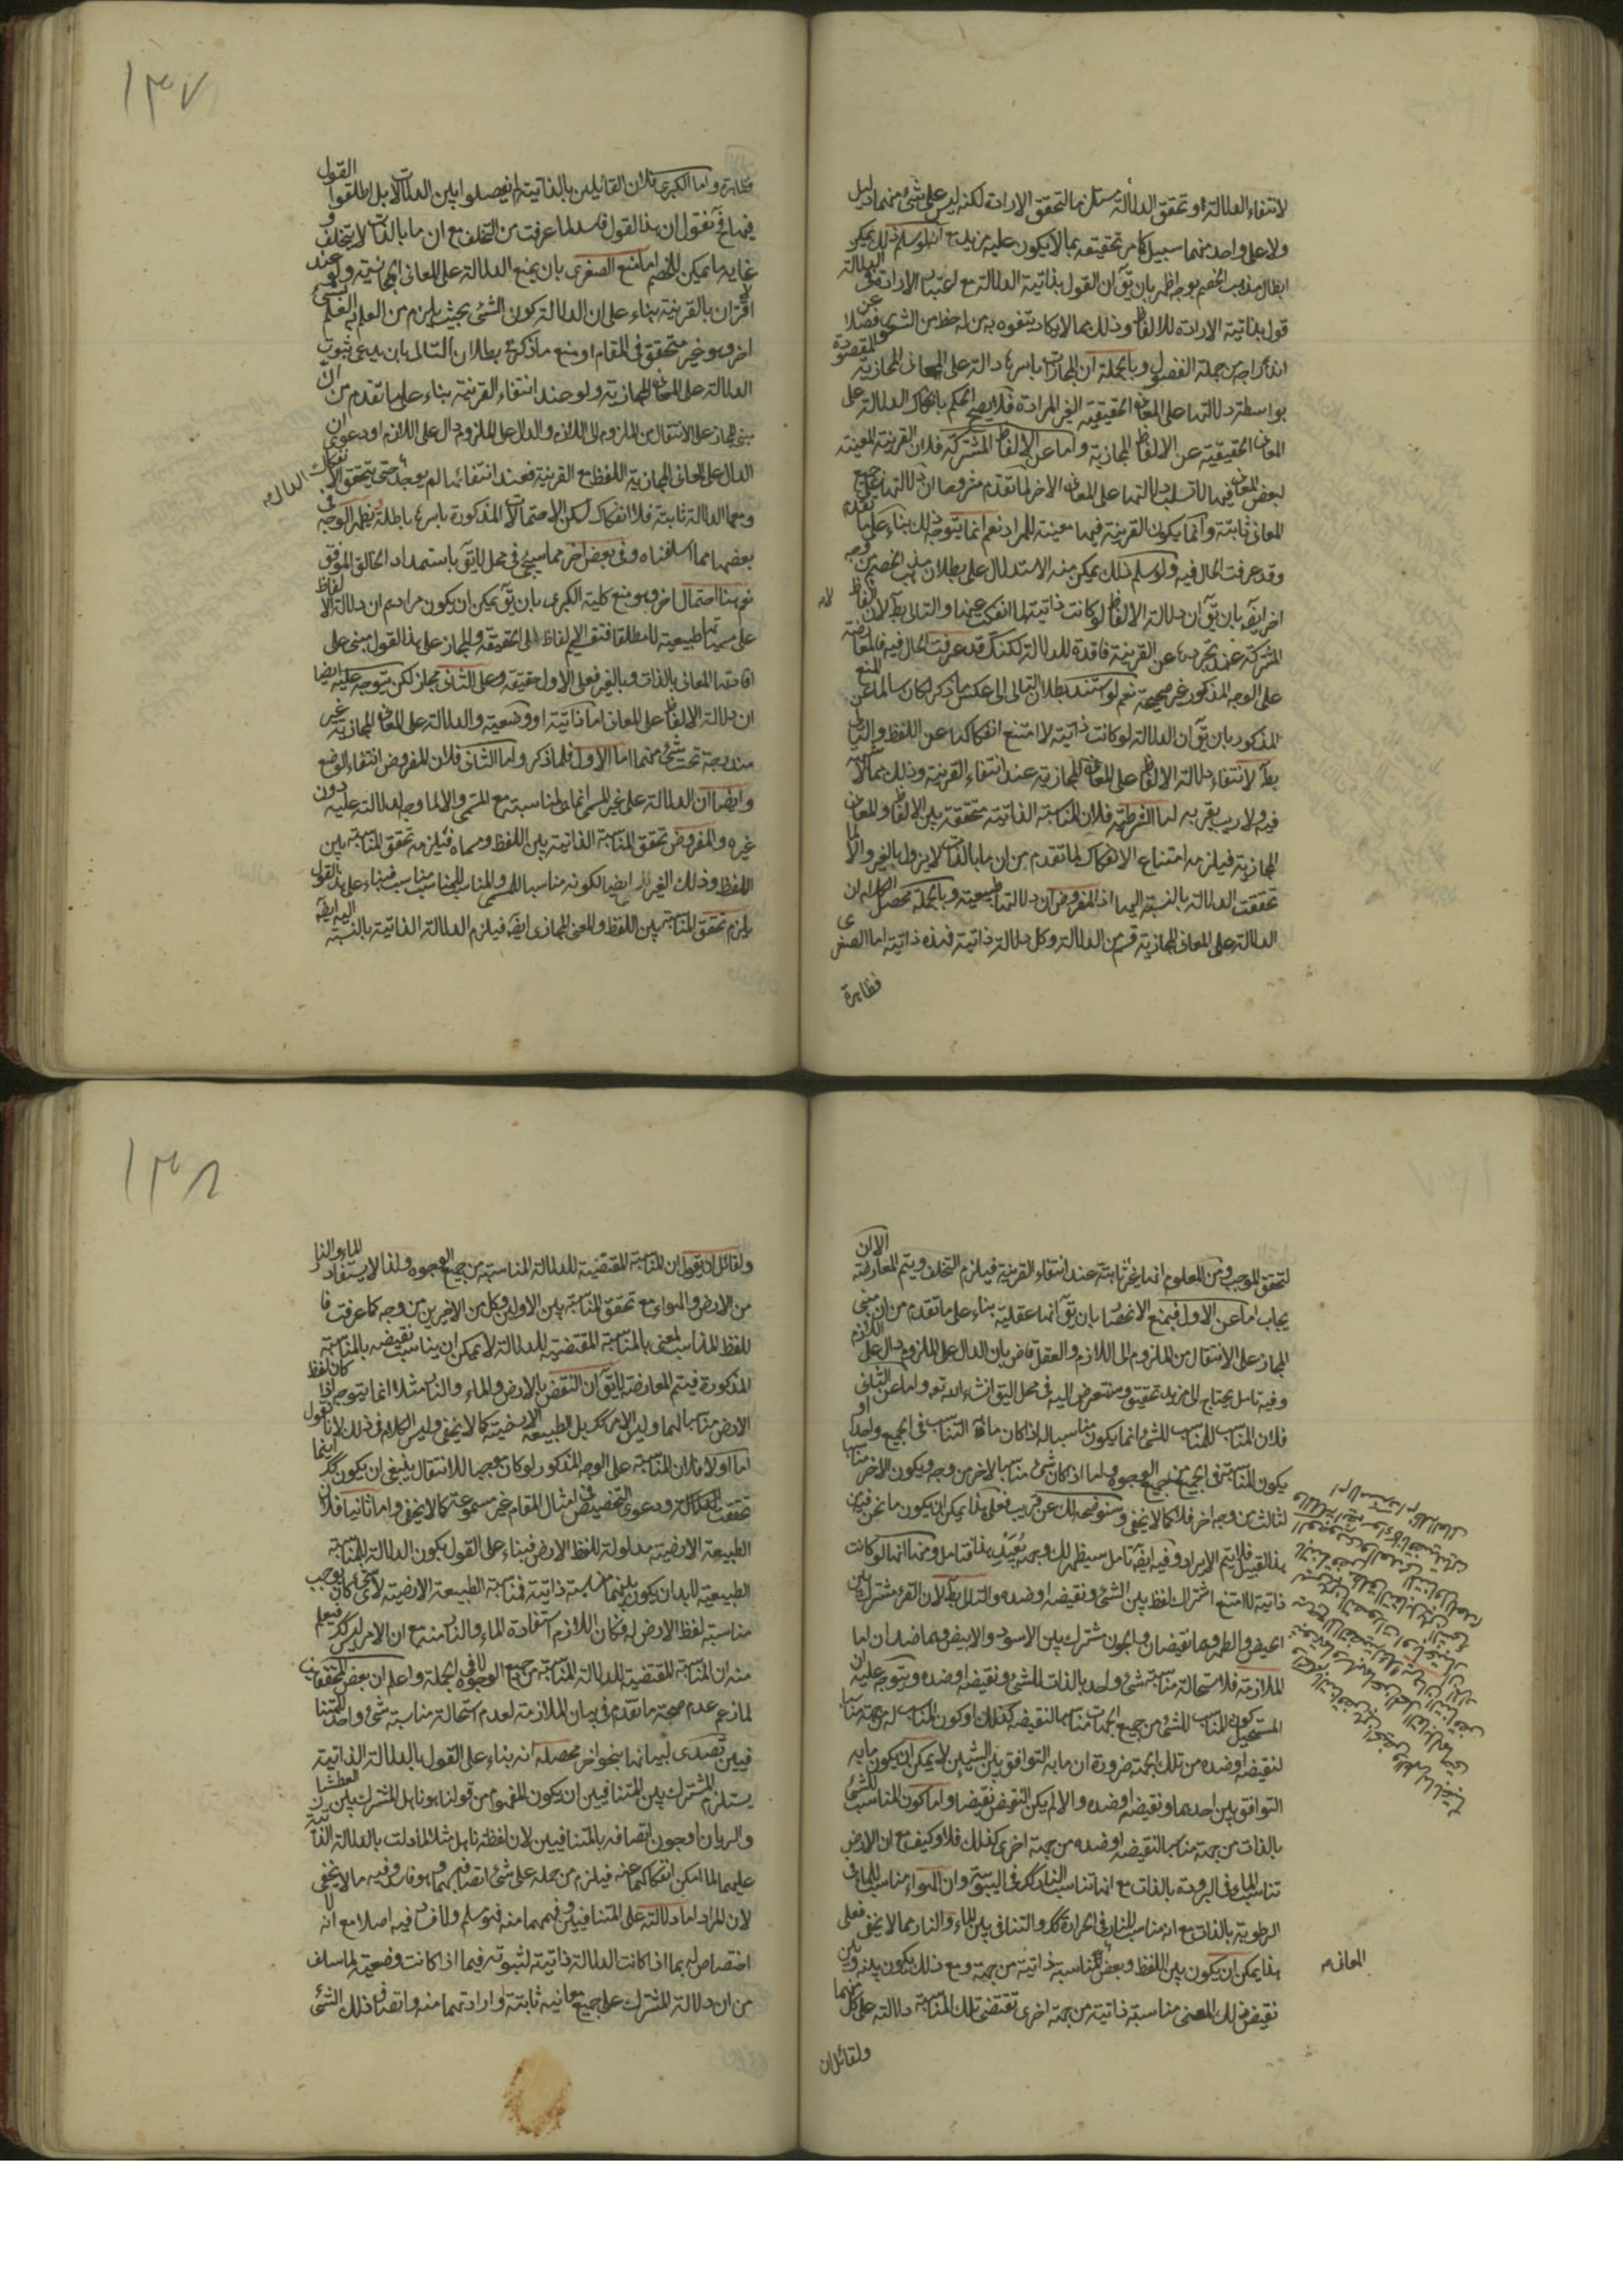 لانتفاء الدلالة او تحقق الدلالة مستلزما لتحقق الارادة لكنه ليس على شئ منهما دليل
ولا على واحد منهما سبيل كا مر تحقيقه بما لا يكون عليه مزيد مع انه لو سلم ذلك يمكن
ابطال مذهب الخصم بوجه اظهر بان يق ان القول بذاتية الدلالة مع اعتبار الارادة فى الدلالة
قول بذاتية الارادة للالفاظ وذلك مما لا يكاد يتفوه به من له حظ من الشعور فضلا عن
اندراجه من جملة الفضول وبالجملة ان المجازات باسرها دالة على المعانى المجازية المقصودة
بواسطة دلالتها على المعانى الحقيقية الغير المرادة فلا يصح الحكم بانفكاك الدلالة على
المعانى الحقيقية عن الالفاظ المجازية واما عن الالفاظ المشتركة فلان القرينة المعينة
لبعض المعانى فيها لا تسلب دلالتها على المعانى الاخر لما تقدم مشروحا ان دلالتها على جميع
المعانى ثابتة وانما يكون القرينة فيها معينة للمراد نعم انما يتوجه ذلك بناء على ما تقدم
وقد عرفت الحال فيه ولو سلم ذلك يمكن منه الاستدلال على بطلان مذهب الخصم من وجه
اخر ايضا بان يق ان دلالة الالفاظ لو كانت ذاتية لها لما انفكت عنها والتالى بط لان الالفاظ
المشتركة عند تجردها عن القرينة فاقدة للدلالة لكنك قد عرفت الحال فيه فالمعارضة
على الوجه المذكور غير صحيحة نعم لو استند بطلان التالى الى عكس ما ذكر لكان سالما عن المنع
المذكور بان يق ان الدلالة لو كانت ذاتية لامتنع انفكاكها عن اللفظ والتالى
بط لانتفاء دلالة الالفاظ على المعانى المجازية عند انتفاء القرينة وذلك مما لا شبهة
فيه ولا ريب يعتريه اما الشرطية فلان المناسبة الذاتية متحققة بين الالفاظ والمعانى
المجازية فيلزمه امتناع الانفكاك لما تقدم من ان ما بالذات لا يزول بالغير والا لما
تحققت الدلالة بالنسبة اليها اذ المفروض ان دلالتها طبيعية وبالجملة محصل الكلام ان
الدلالة على المعانى المجازية قسم من الدلالة وكل دلالة ذاتية فهذه ذاتية اما الصغرى
فظاهرة
١٣٧
فظاهرة واما الكبرى فلان القايلين بالذاتية لم يفصلوا بين الدلالات بل اطلقوا القول
فيها فح نقول ان هذا القول فاسد لما عرفت من التخلف مع ان ما بالذات لا يتخلف و
غاية ما يمكن للخصم اما منع الصغرى بان يمنع الدلالة على المعانى المجازية ولو عند
اقتران بالقرينة بناء على ان الدلالة كون الشئ بحيث يلزم من العلم به العلم بشئ
اخر وهو غير متحقق فى المقام او منع ما ذكر من بطلان التالى بان يدعى ثبوت
الدلالة على المعانى المجازية ولو عند انتفاء القرينة بناء على ما تقدم من ان
مبنى المجاز على الانتقال من الملزوم الى اللازم والدال على الملزوم دال على اللازم او دعوى ان
الدال على المعانى المجازية اللفظ مع القرينة فعند انتفائها لم يوجد الدال حتى يتحقق الانفكاك
ومعها الدلالة ثابتة فلا انفكاك لكن الاحتمالات المذكورة باسرها باطلة يظهر الوجه فى
بعضها مما اسلفناه وفى بعض اخر مما سيجئ فى محل لايق باستمداد الخالق الموفق
نعم هنا احتمال اخر وهو منع كلية الكبرى بان يق يمكن ان يكون مرادهم ان دلالة الالفاظ
على مسمياتها طبيعية لا مطلقا فتقسيم الالفاظ الى الحقيقة والمجاز على هذا القول مبنى على
افادتها المعانى بالذات وبالغير فعلى الاول حقيقة وعلى الثانى مجاز لكن يتوجه عليه ايضا
ان دلالة الالفاظ على المعانى اما ذاتية او وضعية والدلالة على المعانى المجازية غير
مندرجة تحت شئ منهما اما الاول فلما ذكر واما الثانى فلان المفروض انتفاء الوضع
وايضا ان الدلالة على غير المسمى انما هى لمناسبة مع المسمى والا لما وجه لدلالة عليه دون
غيره والمفروض تحقق المناسبة الذاتية بين اللفظ ومسماه فيلزمه تحقق المناسبة بين
اللفظ وذلك الغير ايضا لكونه مناسبا للمسمى والمناسب للمناسب مناسب فبناء على هذا القول
يلزم تحقق المناسبة بين اللفظ والمعنى المجازى ايضا فيلزم الدلالة الذاتية بالنسبة اليه ايضا
لتحقق الموجب ومن المعلوم انها غير ثابتة عند انتفاء القرينة فيلزم التخلف ويتم المعارضة الا ان
يجاب اما عن الاول فبمنع الانحصار بان يق انها عقلية بناء على ما تقدم من ان مبنى
المجاز على الانتقال من الملزوم الى اللازم والعقل قاض بان الدال على الملزوم دال على اللازم
وفيه تامل يحتاج الى مزيد تحقيق وسنتعرض اليه فى محل اليق انشاء الله تعه واما عن الثانى
فلان المناسب للمناسب للشئ انما يكون مناسبا له اذا كان ما فيه التناسب فى الجميع واحدا او
يكون المناسبة فى الجميع من جميع الوجوه واما اذا كان شئ مناسبا لاخر من وجه ويكون الاخر مناسبا
لثالث من وجه اخر فلا كما لا يخفى وسنوضحه لك عن قريب فعلى هذا يمكن ان يكون ما نحن فيه من
هذا القبيل فلا يتم الايراد وفيه ايضا تامل سيظهر لك وجه بعيد هذا فتامل ومنها انها لو كانت
ذاتية لامتنع اشتراك لفظ بين الشئ ونقيضه او ضده والتالى بط لان القرء مشترك بين
الحيض والطهر وهما نقيضان والجون مشترك بين الاسود والابيض وهما ضدان اما
الملازمة فلاستحالة مناسبة شئ واحد بالذات للشئ ونقيضه او ضده ويتوجه عليه ان
المستحيل كون المناسب للشئ من جميع الجهات مناسبا لنقيضه كذلك او كون المناسب له من جهة مناسبا
لنقيضه او ضده من تلك الجهة ضرورة ان ما به التوافق بين الشيئين لا يمكن ان يكون ما به
التوافق بين احدهما ونقيضه او ضده والا لم يكن النقيض نقيضا واما كون المناسب للشئ
بالذات من جهة مناسبا لنقيضه او ضده من جهة اخرى كذلك فلا وكيف مع ان الارض
تناسب الماء فى البرودة بالذات مع انها تناسب النار كك فى اليبوسة وان الهواء مناسب للماء فى
الرطوبة بالذات مع انه مناسب للنار فى الحرارة كك والتنافى بين الماء والنار مما لا يخفى فعلى
هذا يمكن ان يكون بين اللفظ وبعض المعانى مناسبة ذاتية من جهة ومع ذلك يكون بينه وبين
نقيض ذلك المعنى مناسبة ذاتية من جهة اخرى تقتضى تلك المناسبة دلالته على كل منهما
ولقائل ان
١٣٨
ولقائل ان يقول ان المناسبة المقتضية للدلالة المناسبة من جميع الوجوه ولذا لا يستفاد الماء والنار
من الارض والهواء مع تحقق المناسبة بين الاولين وكل من الاخيرين من وجه كما عرفت فا
للفظ المناسب لمعنى بالمناسبة المقتضية للدلالة لا يمكن ان يناسب نقيضه بالمناسبة
المذكورة فيتم المعارضة لا يق ان النقض بالارض والماء والنار مثلا انما يتوجه اذا كان لفظ
الارض مناسبا لهما وليس الامر كك بل الطبيعة الارضية كما لا يخفى وليس الكلام فى ذلك لانا نقول
اما اولا فلان المناسبة على الوجه المذكور لو كان موجبا للانتقال ينبغى ان يكون كك اينما
تحققت المناسبة ودعوى التخصيص فى امثال المقام غير مسموعة كما لا يخفى واما ثانيا فلان
الطبيعة الارضية مدلولة للفظ الارض فبناء على القول بكون الدلالة للمناسبة
الطبيعية لا بد ان يكون بينهما مناسبة ذاتية فمناسبة الطبيعة الارضية لاى شئ كان يوجب
مناسبة لفظ الارض له فكان اللازم استفادة الماء والنار منه مع ان الامر ليس كك فيعلم
منه ان المناسبة المقتضية للدلالة المناسبة من جميع الوجوه لا فى الجملة واعلم ان بعض المحققين
لما زعم عدم صحة ما تقدم فى بيان الملازمة لعدم استحالة مناسبة شئ واحد للمتنا
فيين تصدى لبيانها بنحو اخر محصله انه بناء على القول بالدلالة الذاتية
يستلزم المشترك بين المتنافيين ان يكون المفهوم من قولنا هو ناهل المشترك بين العطشان
والريان او جون اتصافه بالمتنافيين لان لفظة ناهل مثلا لما دلت بالدلالة الذاتية
عليهما لما امكن انفكاكهما عنه فيلزم من حمله على شئ اتصافه بهما وهو فاسد وفيه ما لا يخفى
لان المراد اما دلالته على المتنافيين وفهمهما منه فهو مسلم ولا فساد فيه اصلا مع انه لا
اختصاص له بما اذا كانت الدلالة ذاتية لثبوته فيما اذا كانت وضعية لما سلف
من ان دلالة المشترك على جميع معانيه ثابتة او ارادتهما منه واتصاف ذلك الشئ